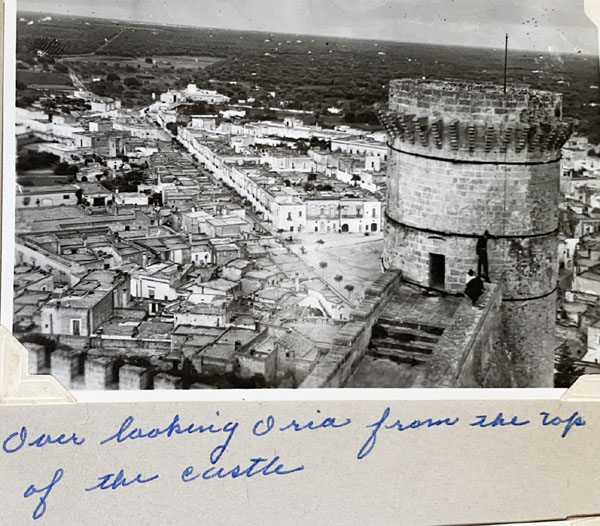 Over looking Oria from the top
of the castle